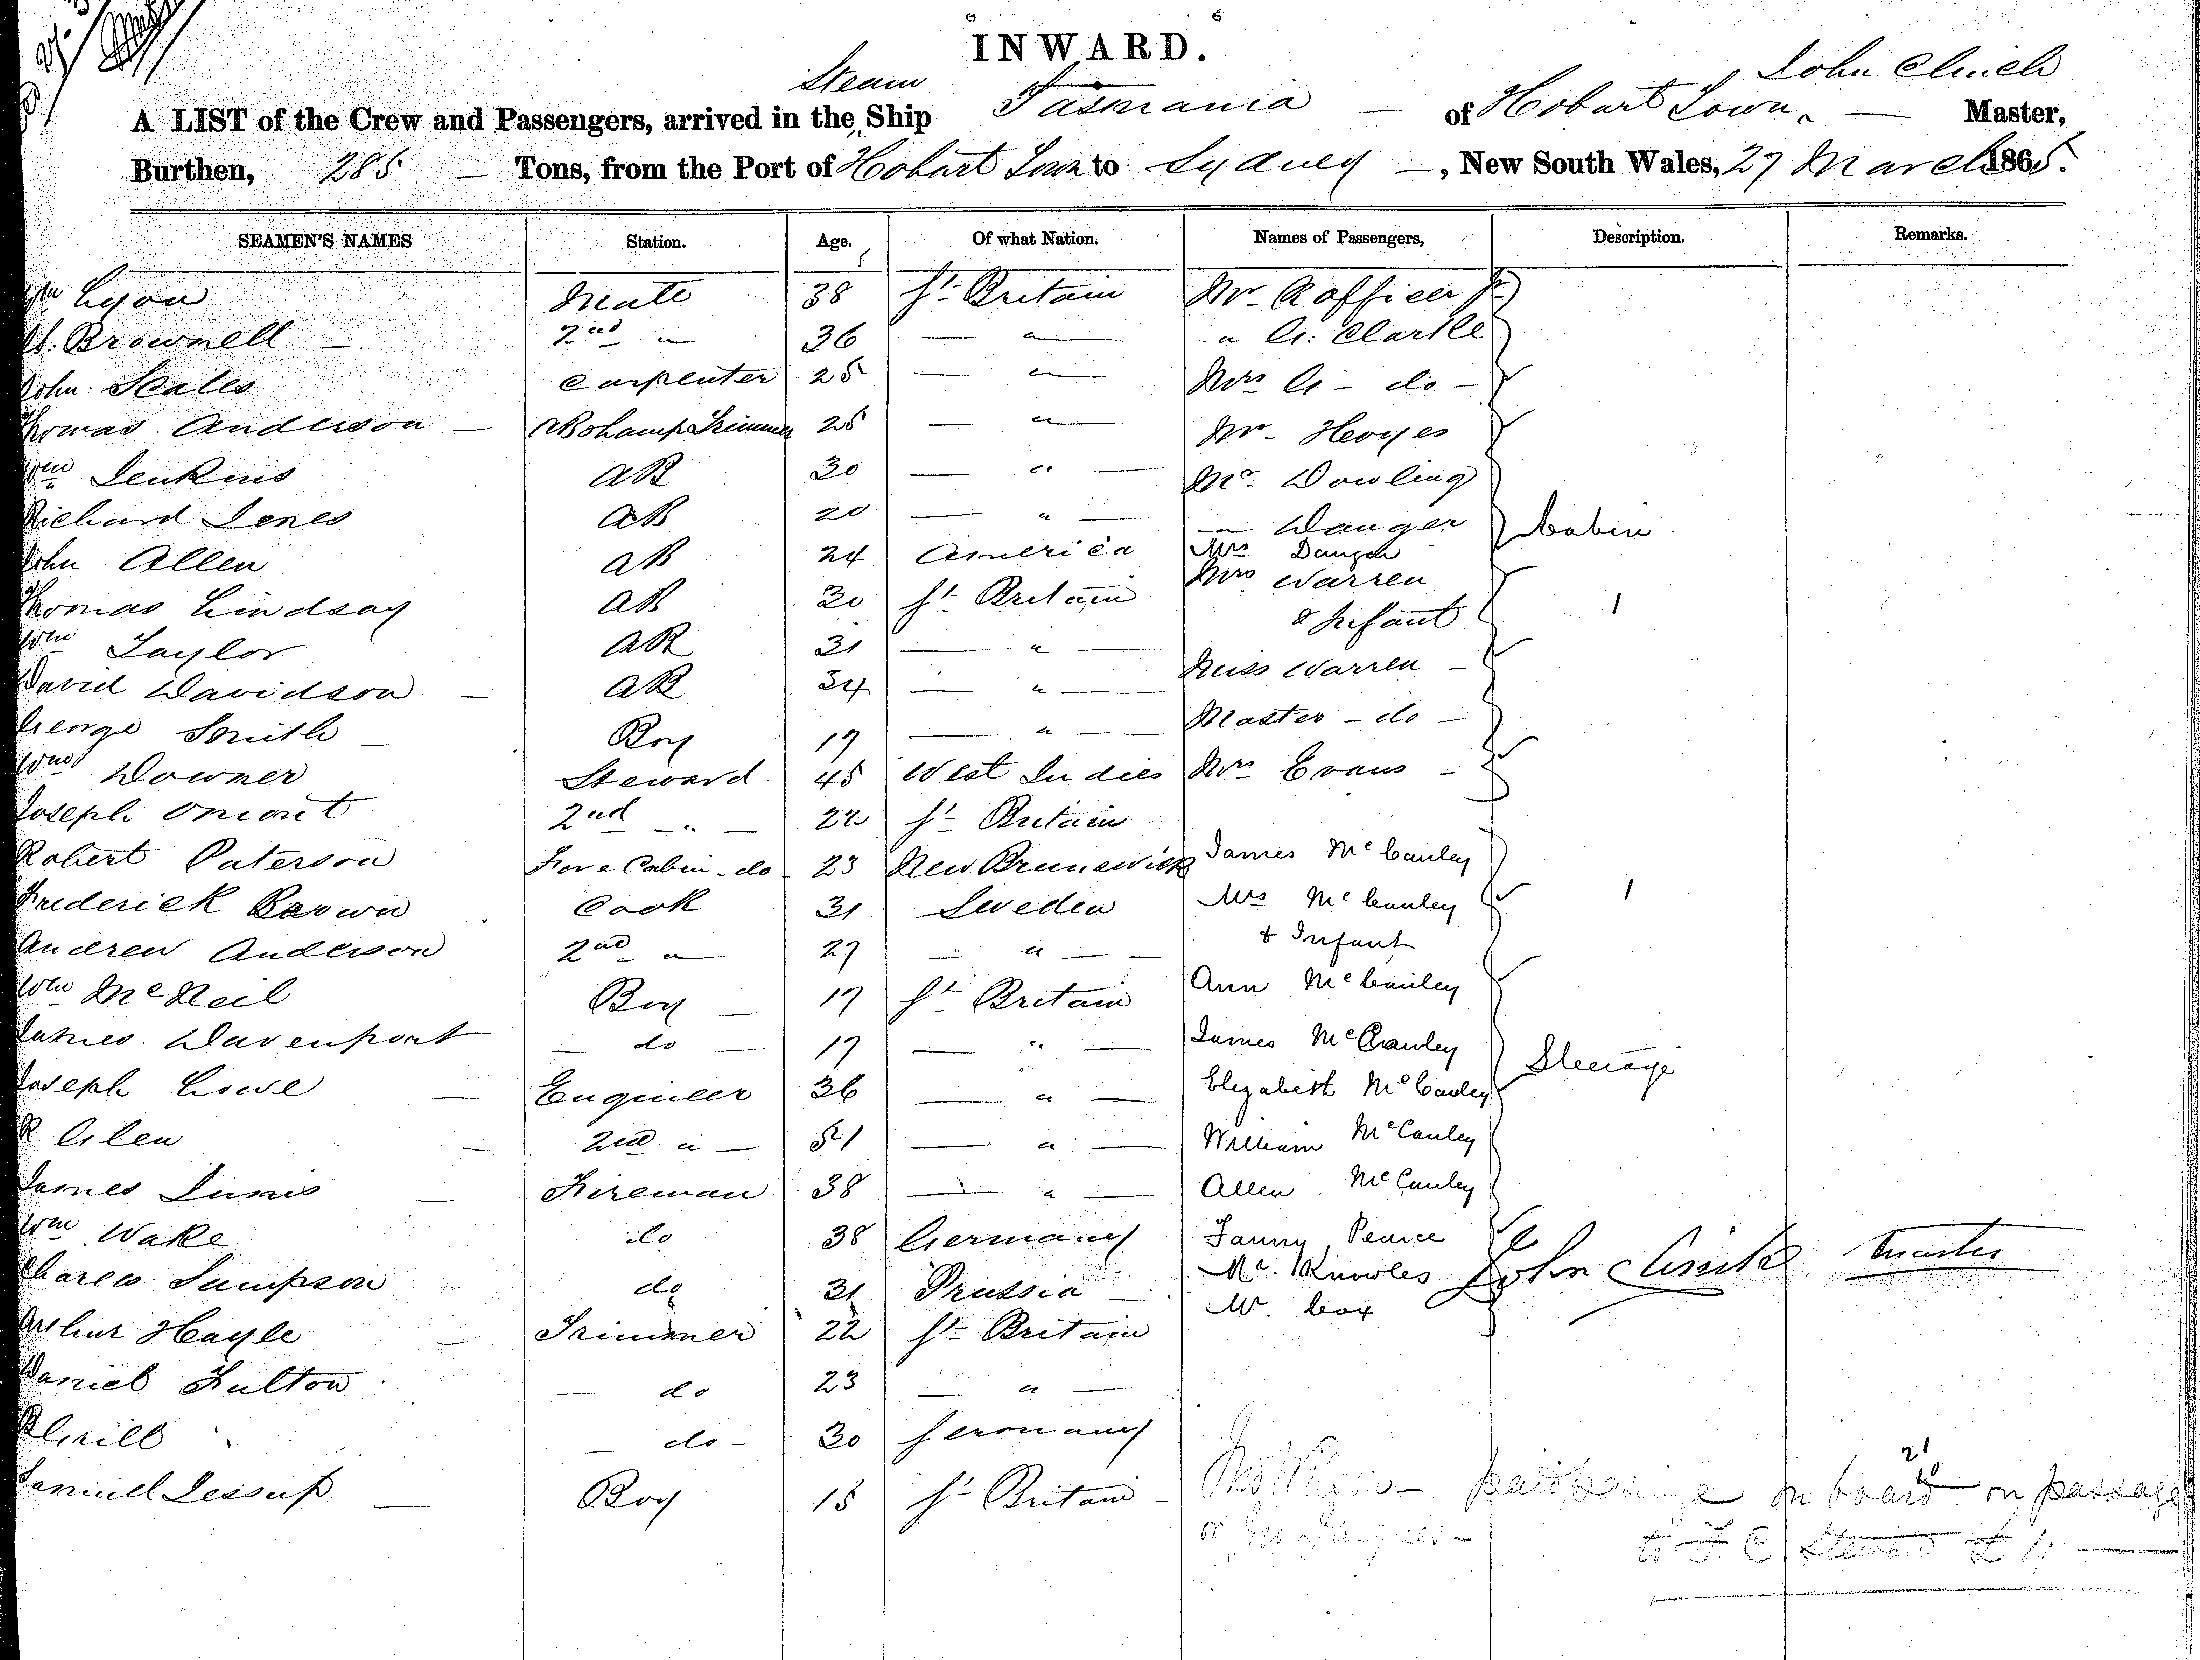 INWARD.
Steam
John Clinch
A LIST of the Crew and Passengers, arrived in the Ship Tasmania of Hobart Town Master,
Burthen, 285 Tons, from the Port of Hobart Town to Sydney, New South Wales, 27 March 1865.
SEAMEN'S NAMES Station. Age. Of what Nation. Names of Passengers, Description. Remarks.
Lyon Mate 38 Gt Britain Mr Officer Jr
Brownell 2nd " 36 " " G. Clarke
John Scales Carpenter 25 " Mrs G - do -
Thomas Anderson Trimmer 25 " Mr
Wm Jenkins AB 30 " Mr Dowling
Richard Jones AB 20 " Danger Cabin
John Allen AB 24 America Mrs Danger
Thomas Lindsay AB 30 Gt Britain Mrs Warren
& Infant 1
Wm Taylor AB 31 "
David Davidson AB 34 " Miss Warren
George Smith Boy 17 " Master - do -
Downer Steward 45 West Indies Mrs Evans
Joseph 2nd " 22 Gt Britain
Robert Paterson Fore Cabin - do 23 New Brunswick James McCauley
Frederick Brown Cook 31 Sweden Mrs McCauley 1
Andrew Anderson 2nd " 27 " & Infant
Wm McNeil Boy 17 Gt Britain Ann McCauley
James Davenport do 17 " James McCauley
Steerage
Joseph Lowe Engineer 36 " Elizabeth McCauley
R Glen 2nd " 51 " William McCauley
James Fireman 38 " Allen McCauley
Wm Wake do 38 Germany Fanny Pearce
Charles Sampson do 31 Prussia Mr. Knowles John Clinch Master
Mr Cox
Arthur Hayle Trimmer 22 Gt Britain
Daniel Fulton do 23 "
do - 30 Germany
Samuel Jessup Boy 15 Gt Britain on board on passage